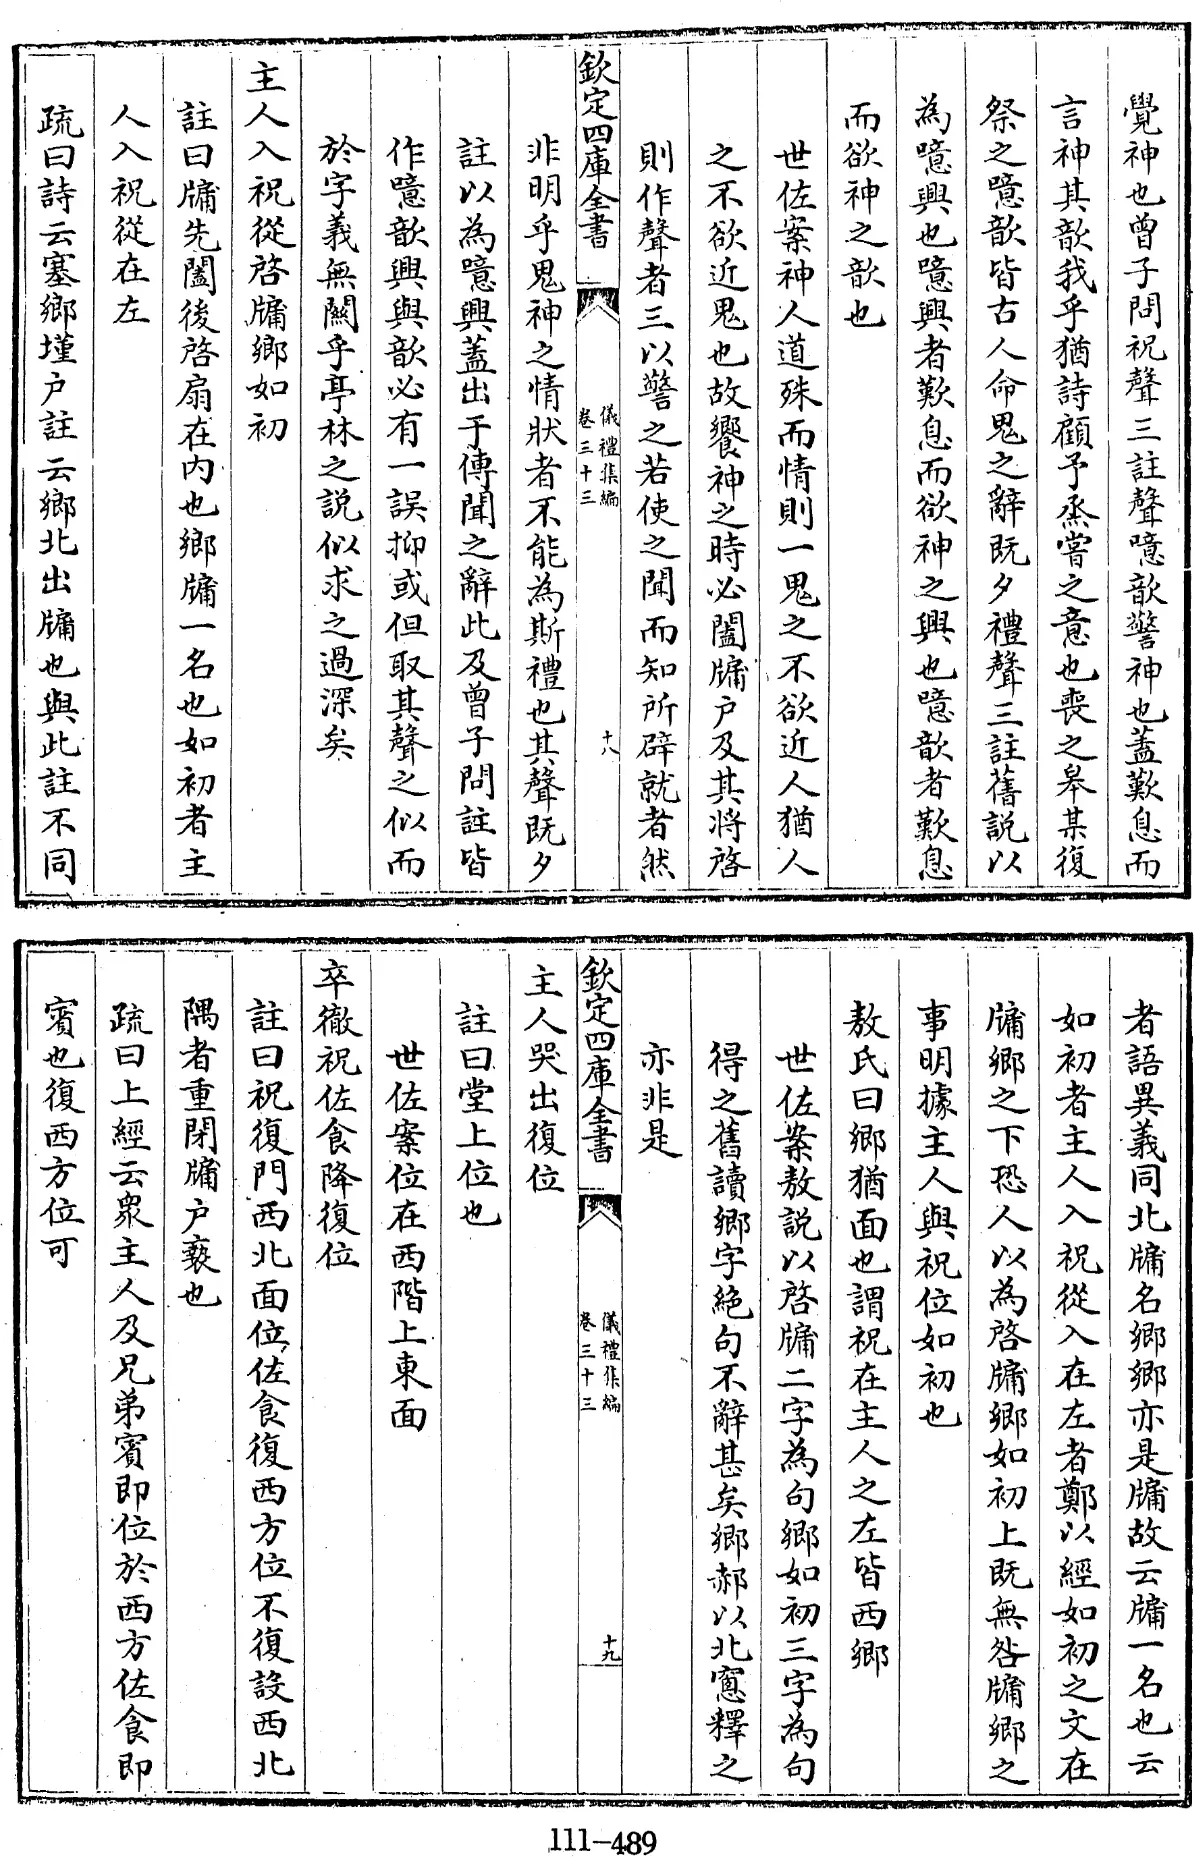 覺神也曾子問祝聲三註聲噫歆警神也蓋歎息而
言神其歆我乎猶詩顧予烝嘗之意也喪之皋某復
祭之噫歆皆古人命鬼之辭既夕禮聲三註舊說以
為噫興也噫興者歎息而欲神之興也噫歆者歎息
而欲神之歆也
世佐案神人道殊而情則一鬼之不欲近人猶人
之不欲近鬼也故饗神之時必闔牖户及其將啓
則作聲者三以警之若使之聞而知所辟就者然
欽定四庫全書
儀禮集編
卷三十三
十八
非明乎鬼神之情狀者不能為斯禮也其聲既夕
註以為噫興蓋出于傳聞之辭此及曾子問註皆
作噫歆興與歆必有一誤抑或但取其聲之似而
於字義無關乎亭林之説似求之過深矣
主人入祝從啓牖鄉如初
註曰牖先闔後啓扇在内也鄉牖一名也如初者主
人入祝從在左
疏曰詩云塞鄉墐户註云鄉北出牖也與此註不同
者語異義同北牖名鄉鄉亦是牖故云牖一名也云
如初者主人入祝從入在左者鄭以經如初之文在
牖鄉之下恐人以為啓牖鄉如初上既無啓牖鄉之
事明據主人與祝位如初也
敖氏曰鄉猶面也謂祝在主人之左皆西鄉
世佐案敖説以啓牖二字為句鄉如初三字為句
得之舊讀鄉字絶句不辭甚矣鄉郝以北窻釋之
亦非是
欽定四庫全書
儀禮集編
卷三十三
十九
主人哭出復位
註曰堂上位也
世佐案位在西階上東面
卒徹祝佐食降復位
註曰祝復門西北面位佐食復西方位不復設西北
隅者重閉牖户褻也
疏曰上經云衆主人及兄弟賓即位於西方佐食即
賓也復西方位可
111-489